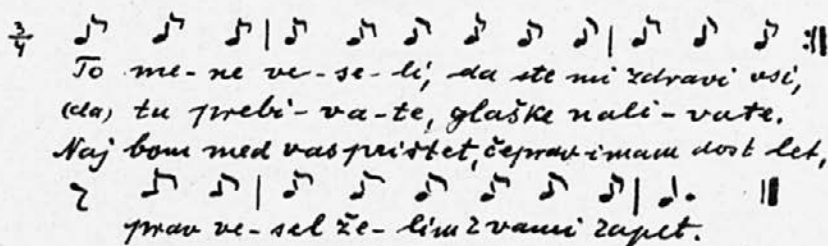 3/4
To me-ne ve-se-li, da ste mi zdravi vsi,
(da) tu prebi-va-te, glaške nali-vate.
Naj bom med vas prištet, čeprav imam dost let,
prav ve-sel že-lim z vami zapet.